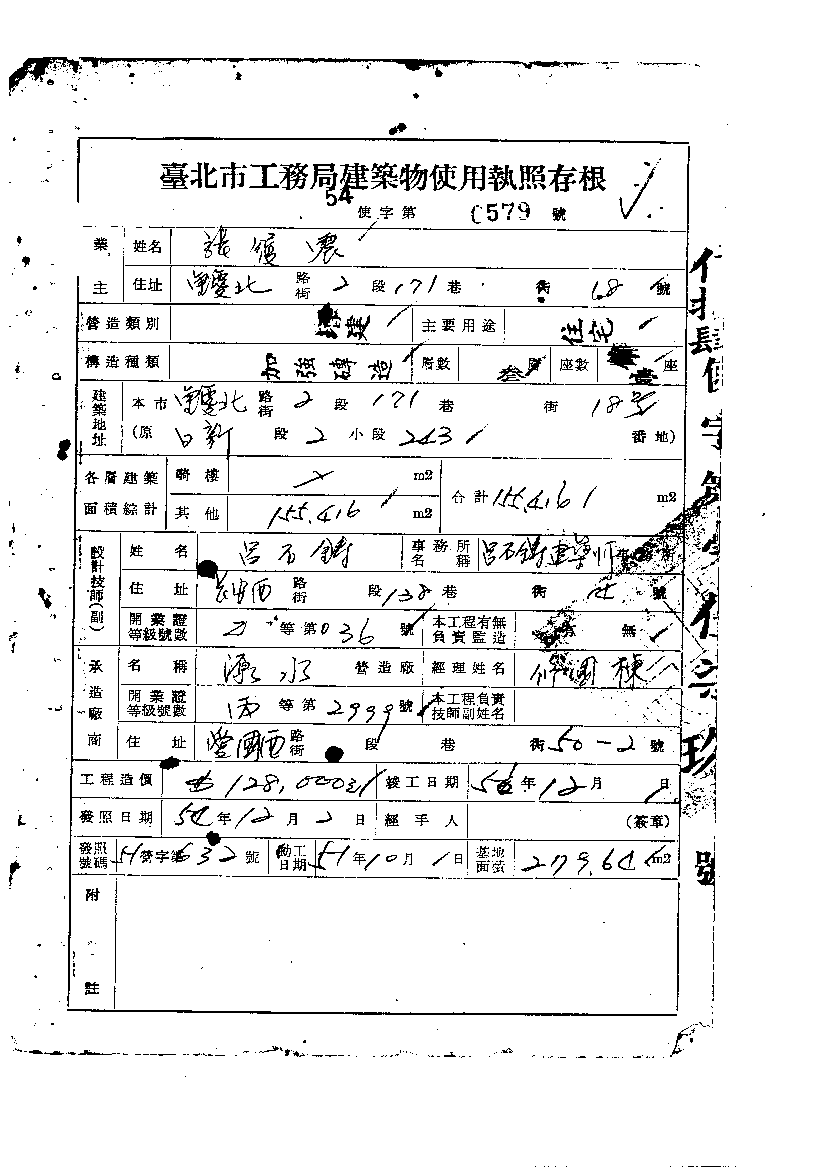 臺北市工務局建築物使用執照存根
54 使字第 C579 號
業主 姓名 張
住址 重慶北 路街 2 段 171 巷 街 18 號
營造類別 建 主要用途 住宅
構造種類 加強磚造 層數 叁層 座數 壹座
建築地址 本市 重慶北 路街 2 段 171 巷 街 18號
(原 日新 段 2 小段 243 番地)
各層建築面積綜計 騎樓 m2
其他 155.416 m2 合計 155.416 m2
設計技師(副) 姓名 呂石鑄 事務所名稱 呂石鑄建築師
住址 長安西 路街 段 138 巷 街 號
開業證等級號數 等第 036 號 本工程有無負責監造 無
承造廠商 名稱 源水 營造廠 經理姓名 國棟
開業證等級號數 丙 等第 2999 號 本工程負責技師副姓名
住址 愛國西 路街 段 巷 街 50-2 號
工程造價 128,000 竣工日期 54 年 12 月 1 日
發照日期 54 年 12 月 2 日 經手人 (簽章)
發照號碼 51 營字第 632 號 動工日期 51 年 10 月 1 日 基地面積 279.64 m2
附註
號